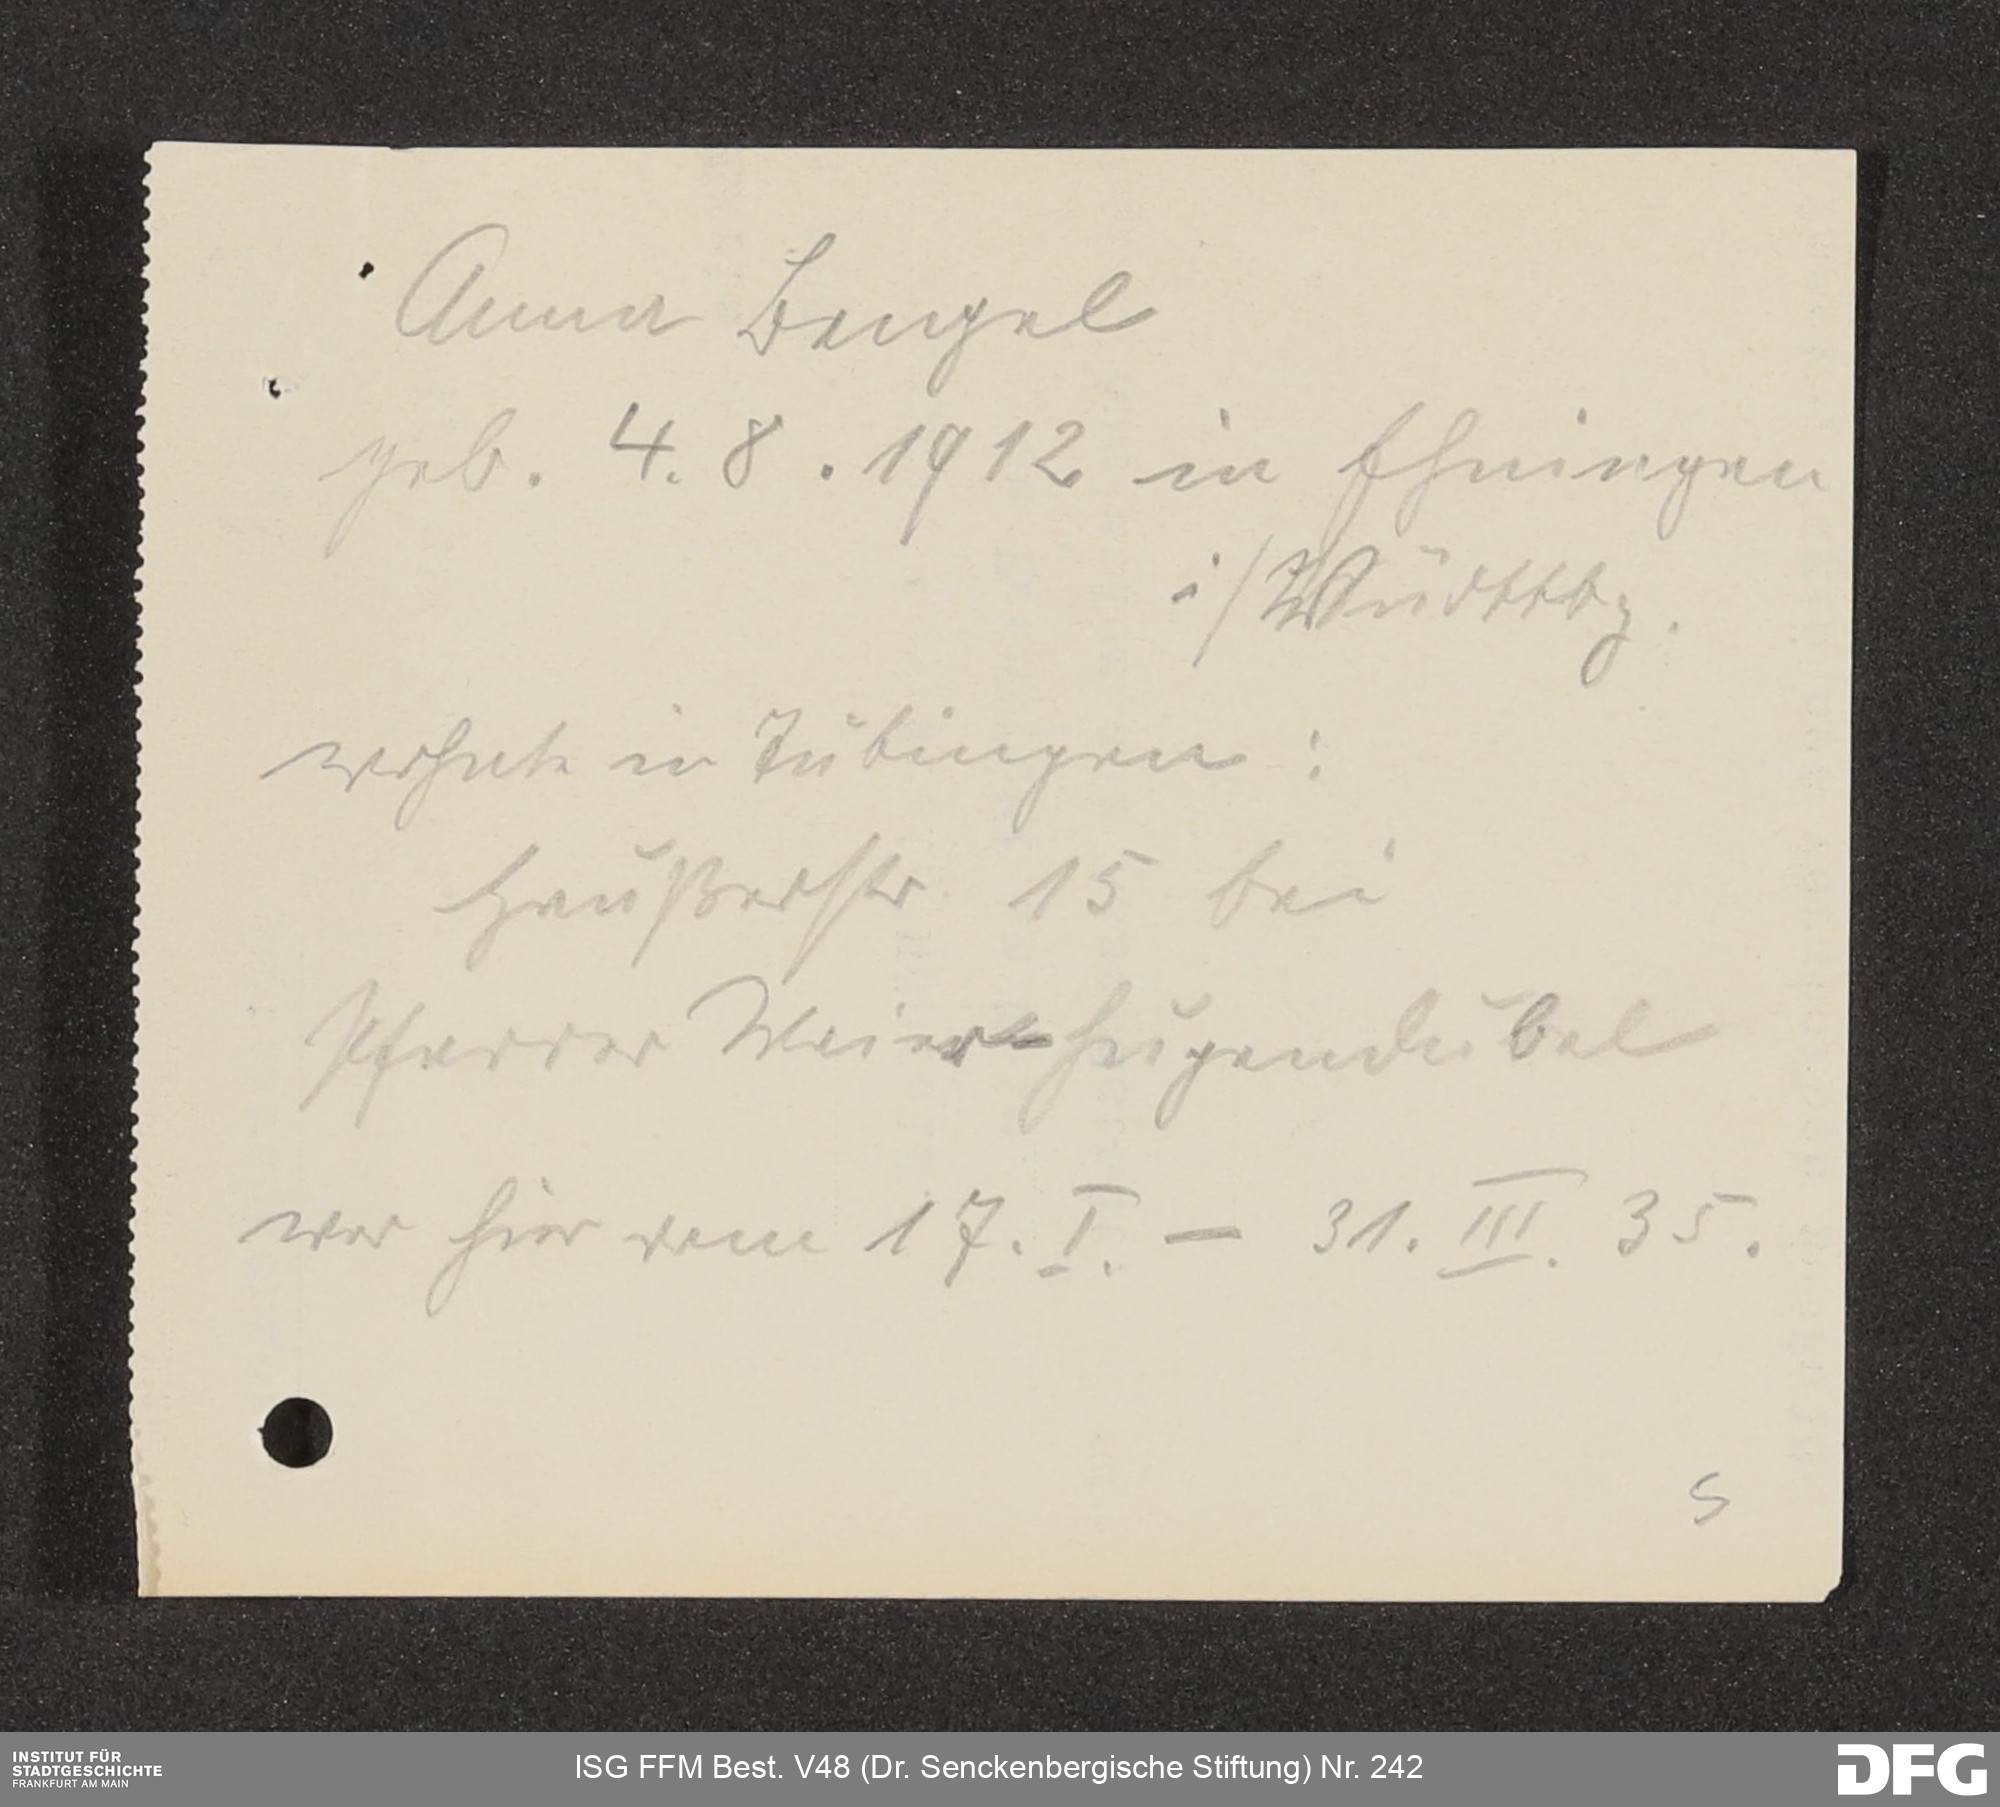 Anna Bengel
geb. 4. 8. 1912 in Ehningen
i/Württbg.
wohnte in Tübingen:
Haußerstr. 15 bei
Pfarrer Meier-Hugendubel
war hier vom 17. I. – 31. III. 35.
S
INSTITUT FÜR
STADTGESCHICHTE
FRANKFURT AM MAIN
ISG FFM Best. V48 (Dr. Senckenbergische Stiftung) Nr. 242
DFG